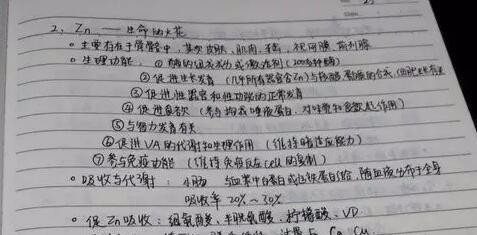 2、Zn —— 生命的火花
主要存在于骨骼中，其次皮肤、肌肉、视网膜、前列腺
生理功能：① 酶的组成成分或激活剂（200多种酶）
② 促进生长发育（几乎所有器官含Zn）与核酸、蛋白质的合成
③ 促进性器官和性功能的正常发育
④ 促进食欲（参与构成唾液蛋白，对味觉和食欲起作用）
⑤ 与智力发育有关
⑥ 促进VA的代谢和生理作用（维持暗适应能力）
⑦ 参与免疫功能（维持免疫反应cell的复制）
吸收与代谢：小肠 与血浆中白蛋白或运铁蛋白结合，随血液分布于全身
吸收率 20%~30%
促Zn吸收：组氨酸、半胱氨酸、柠檬酸、VD
过量 Fe Ca Cu